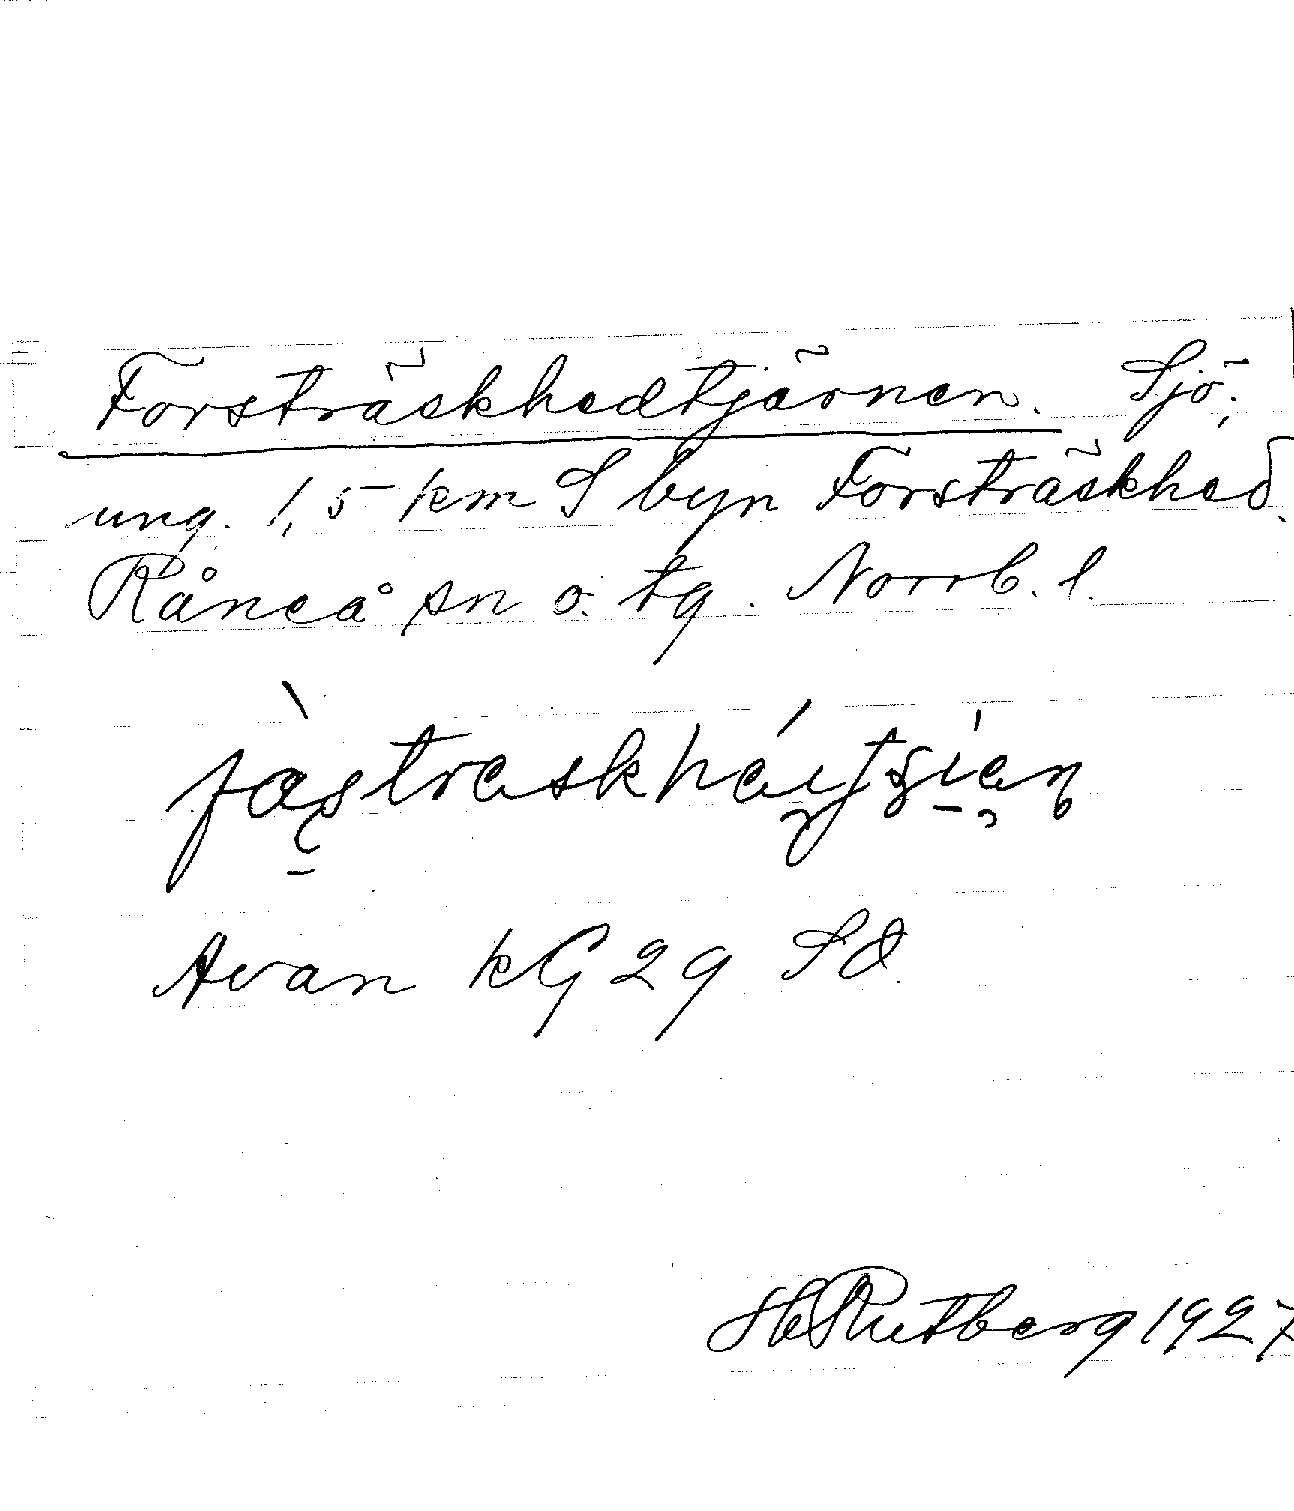 Forsträskhedtjärnen. Sjö;
ung. 1,5 km S byn Forsträskhed.
Råneå sn o. tg. Norrb. l.
Avan kG 29 Sd.
H Rutberg 1927